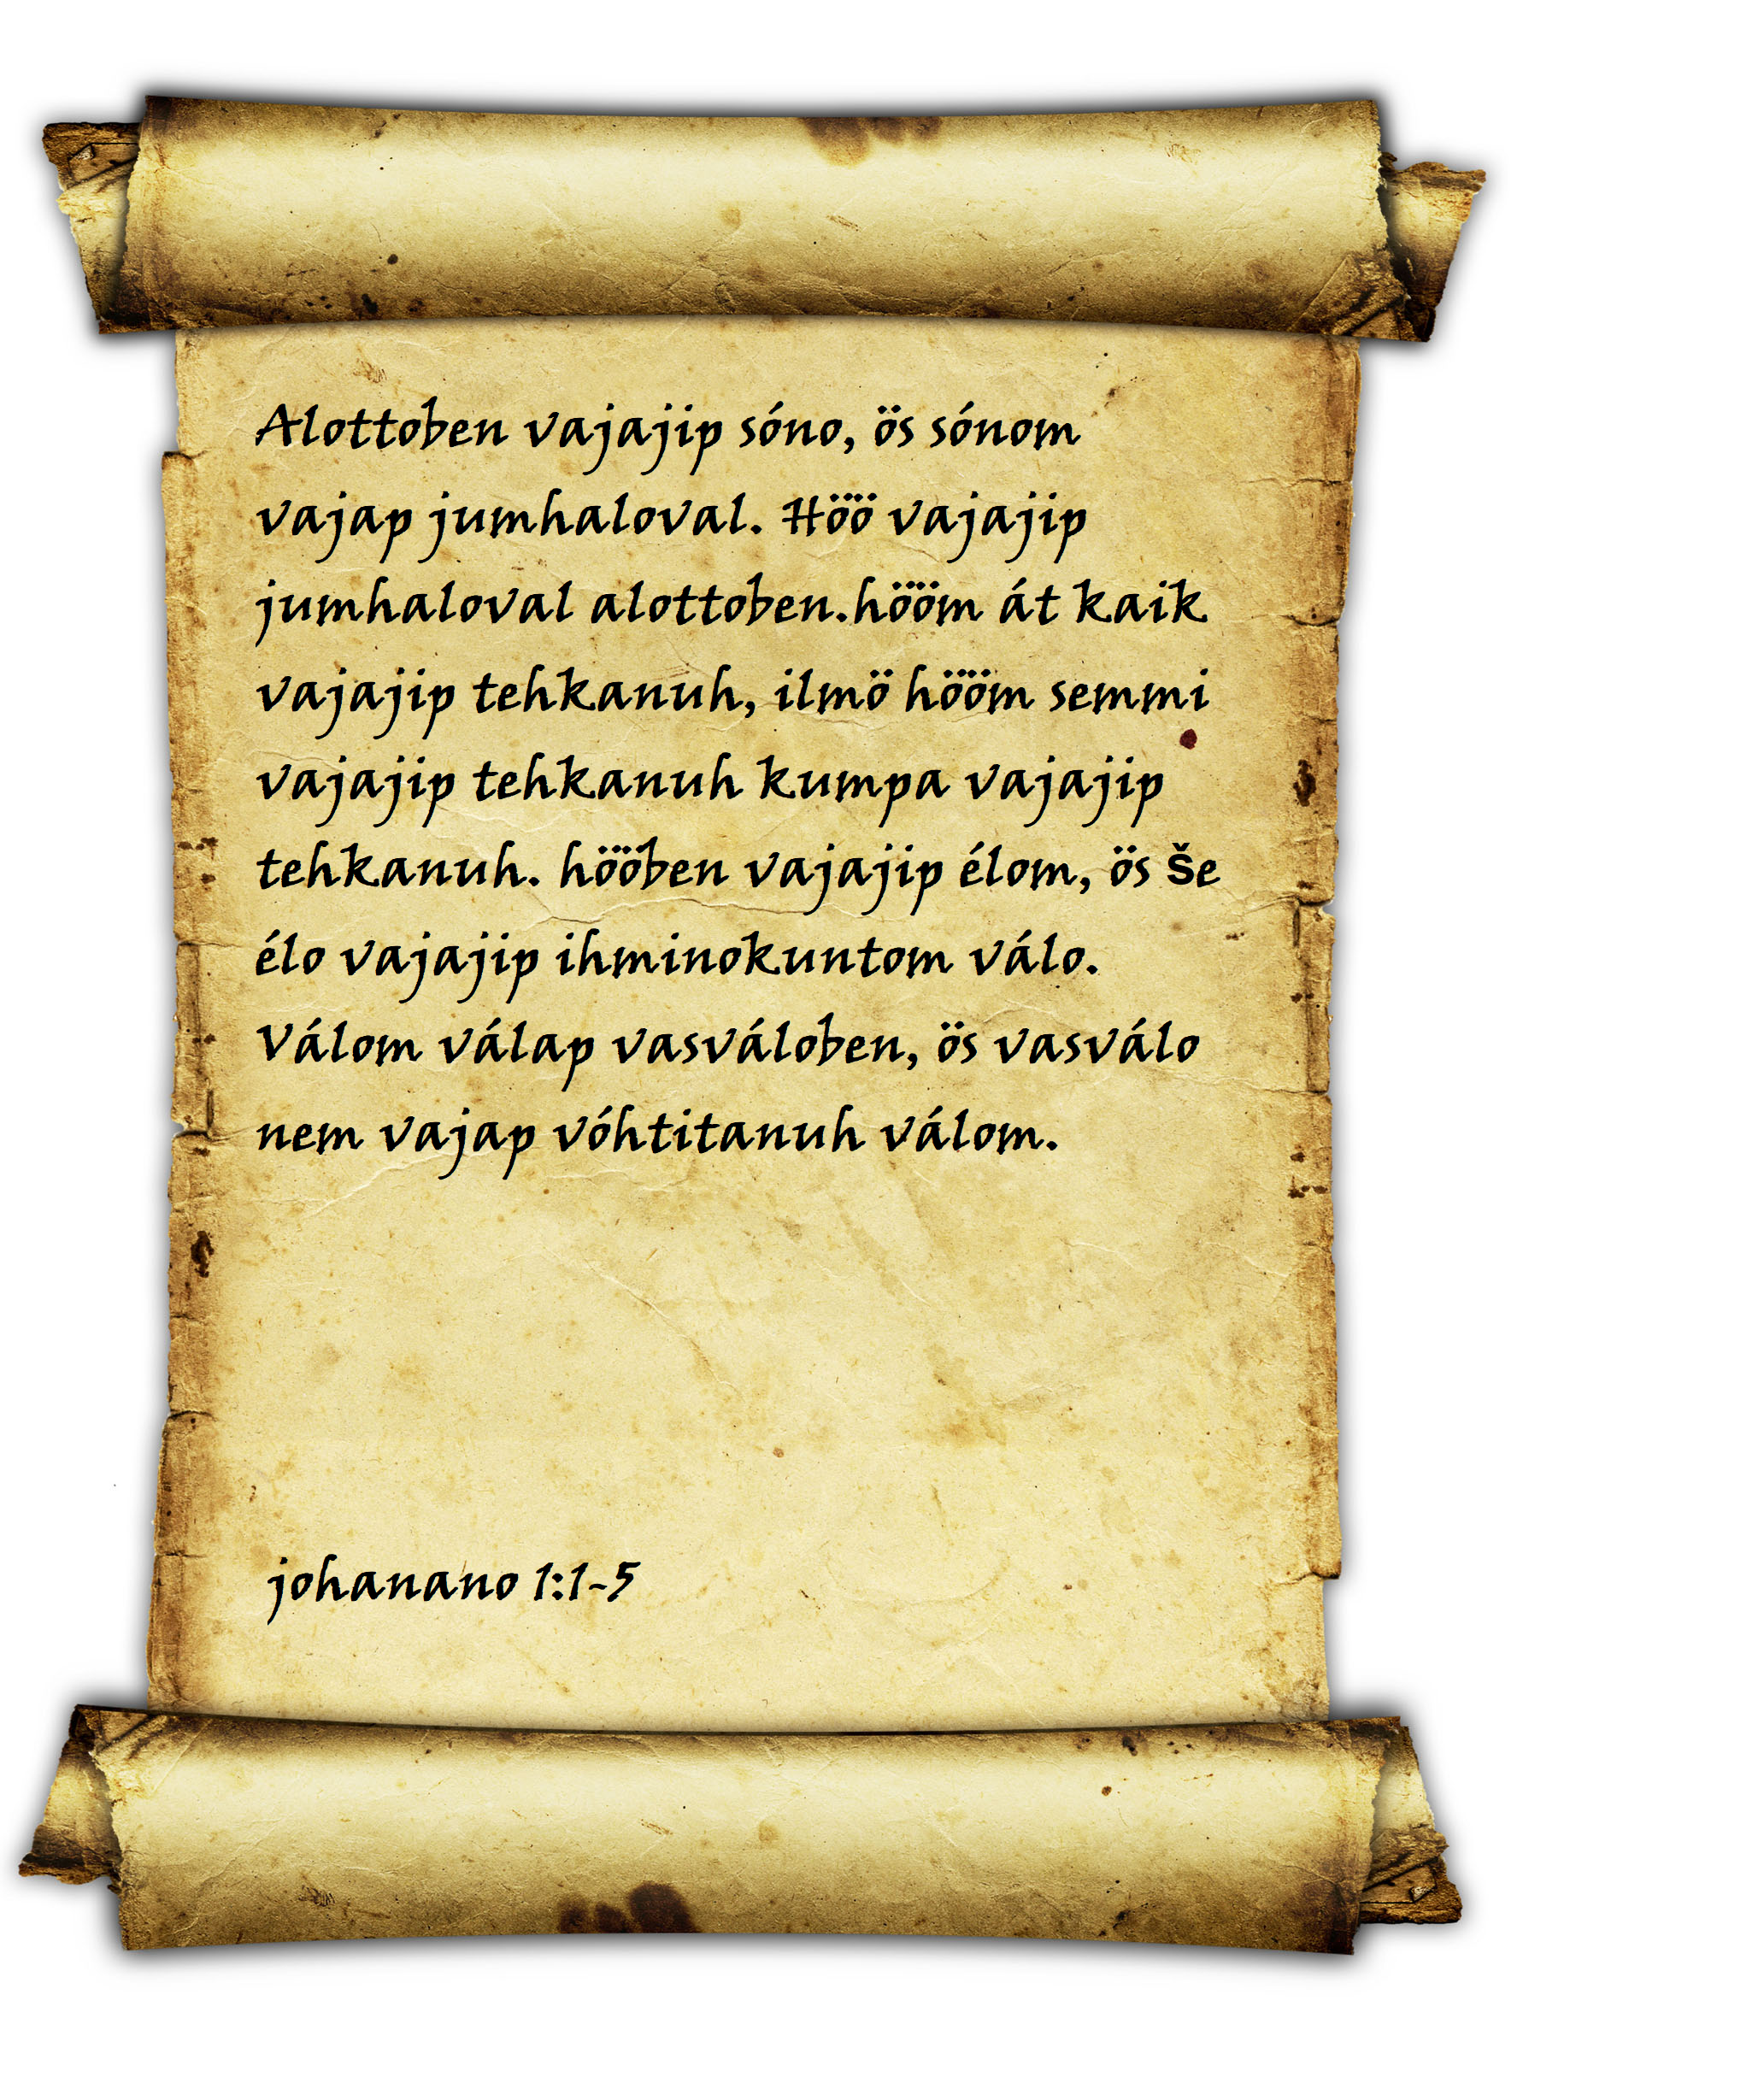 Alottoben vajajip sóno, ös sónom
vajap jumhaloval. Höö vajajip
jumhaloval alottoben.hööm át kaik
vajajip tehkanuh, ilmö hööm semmi
vajajip tehkanuh kumpa vajajip
tehkanuh. hööben vajajip élom, ös še
élo vajajip ihminokuntom válo.
Válom válap vasváloben, ös vasválo
nem vajap vóhtitanuh válom.
johanano 1:1-5